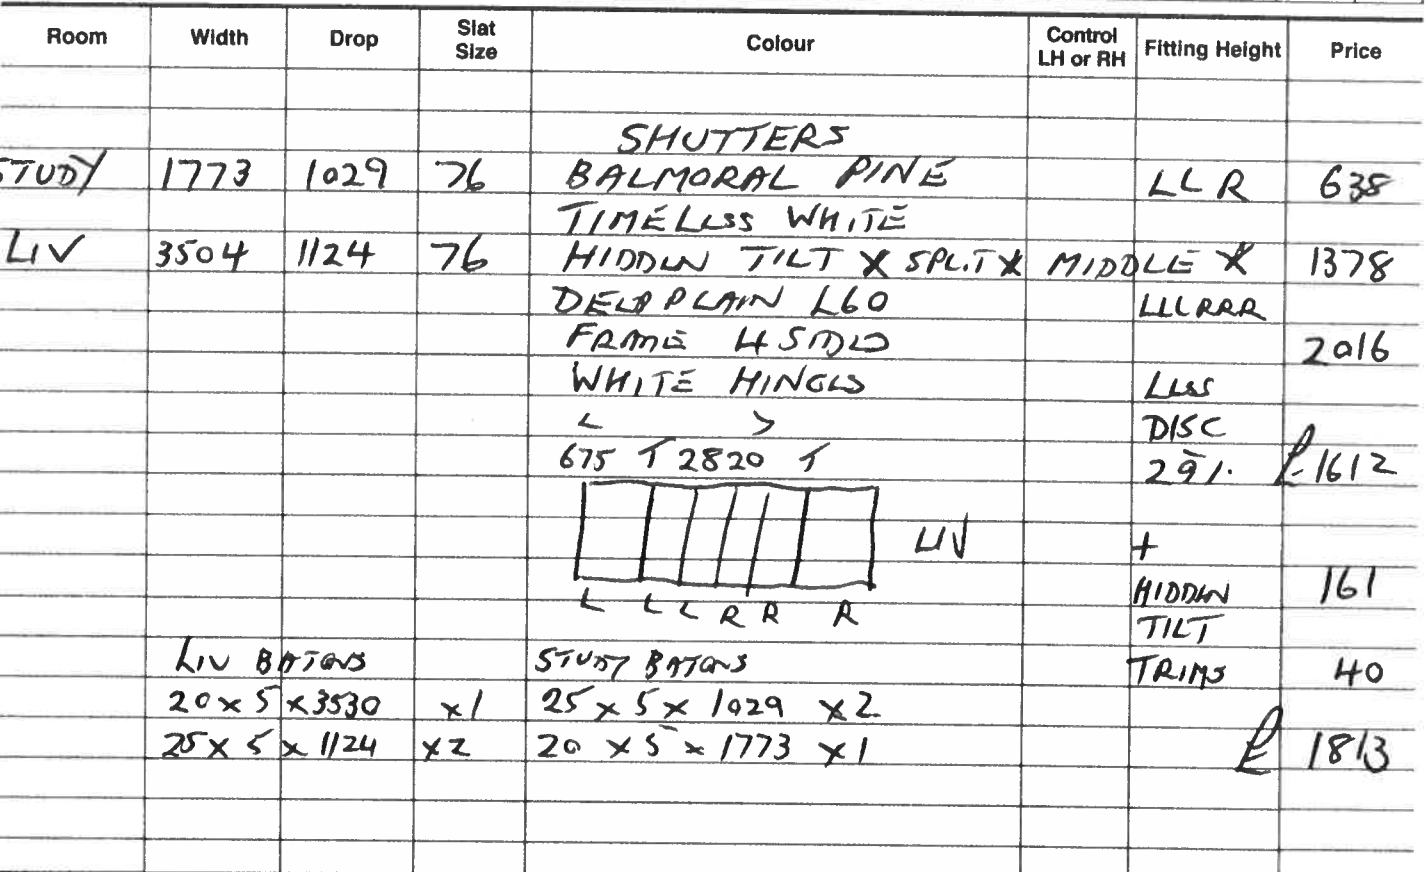 Room Width Drop Slat Size Colour Control LH or RH Fitting Height Price
SHUTTERS
STUDY 1773 1029 76 BALMORAL PINE LLR 638
TIMELESS WHITE
LIV 3504 1124 76 HIDDEN TILT X SPLIT X MIDDLE X 1378
PLAIN L60 LLLRRR
FRAME 2016
WHITE HINGES LESS
< > DISC
675 T 2820 T 29%. £1612
LIV +
HIDDEN 161
L L L R R R
TILT
LIV BATONS STUDY BATONS TRIMS 40
20 x 5 x 3530 x1 25 x 5 x 1029 x2
25 x 5 x 1124 x2 20 x 5 x 1773 x1 £ 1813